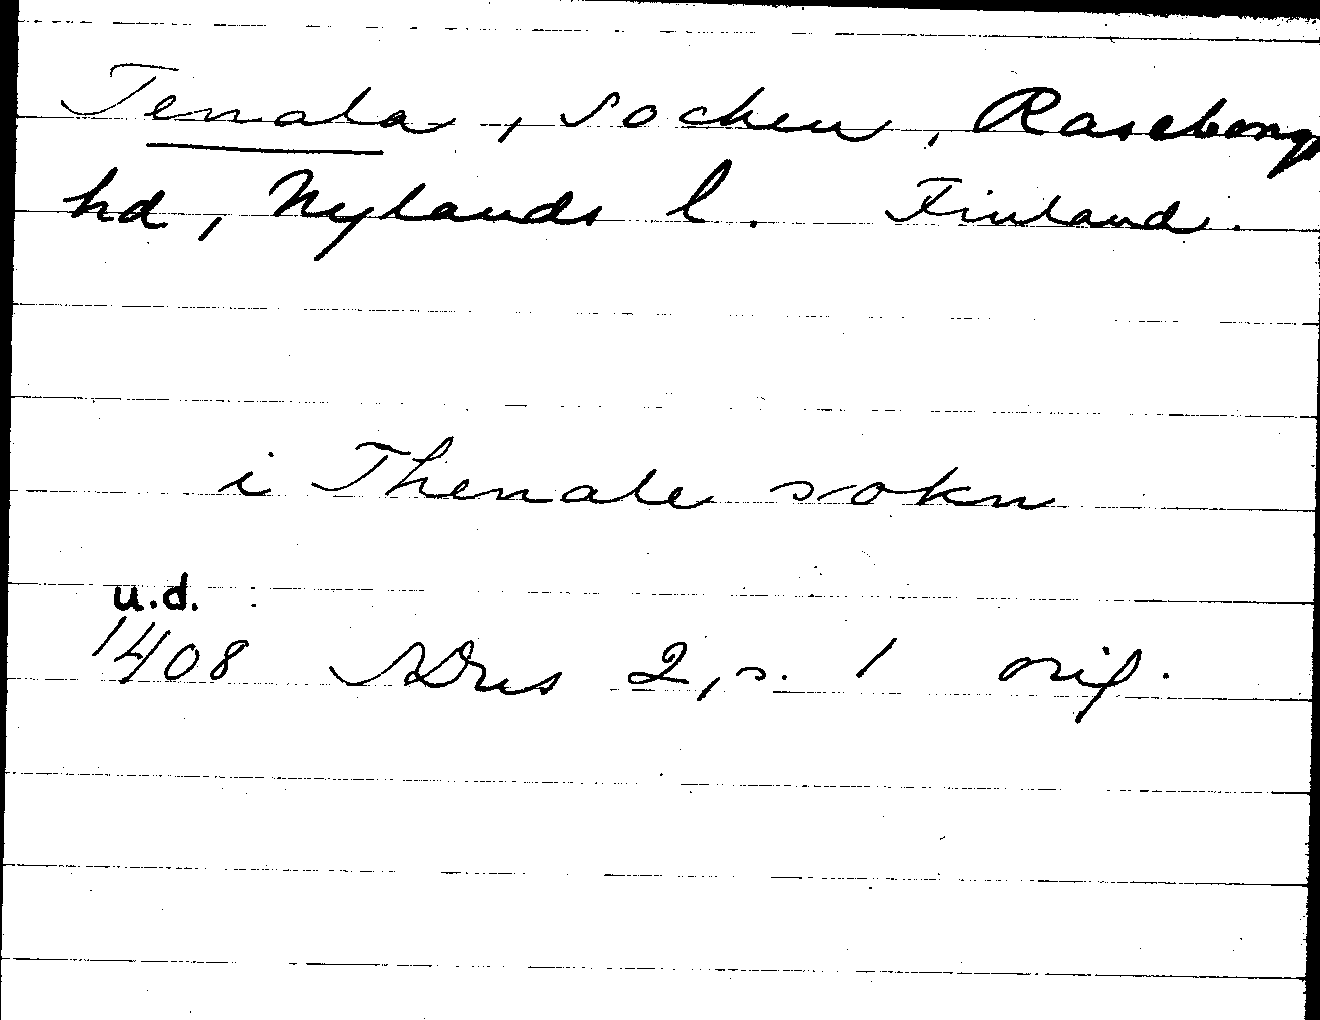 Tenala, socken, Raseborgs
hd, Nylands l. Finland.
i Thenale sokn
u.d.
1408 SDns 2, s. 1 orig.